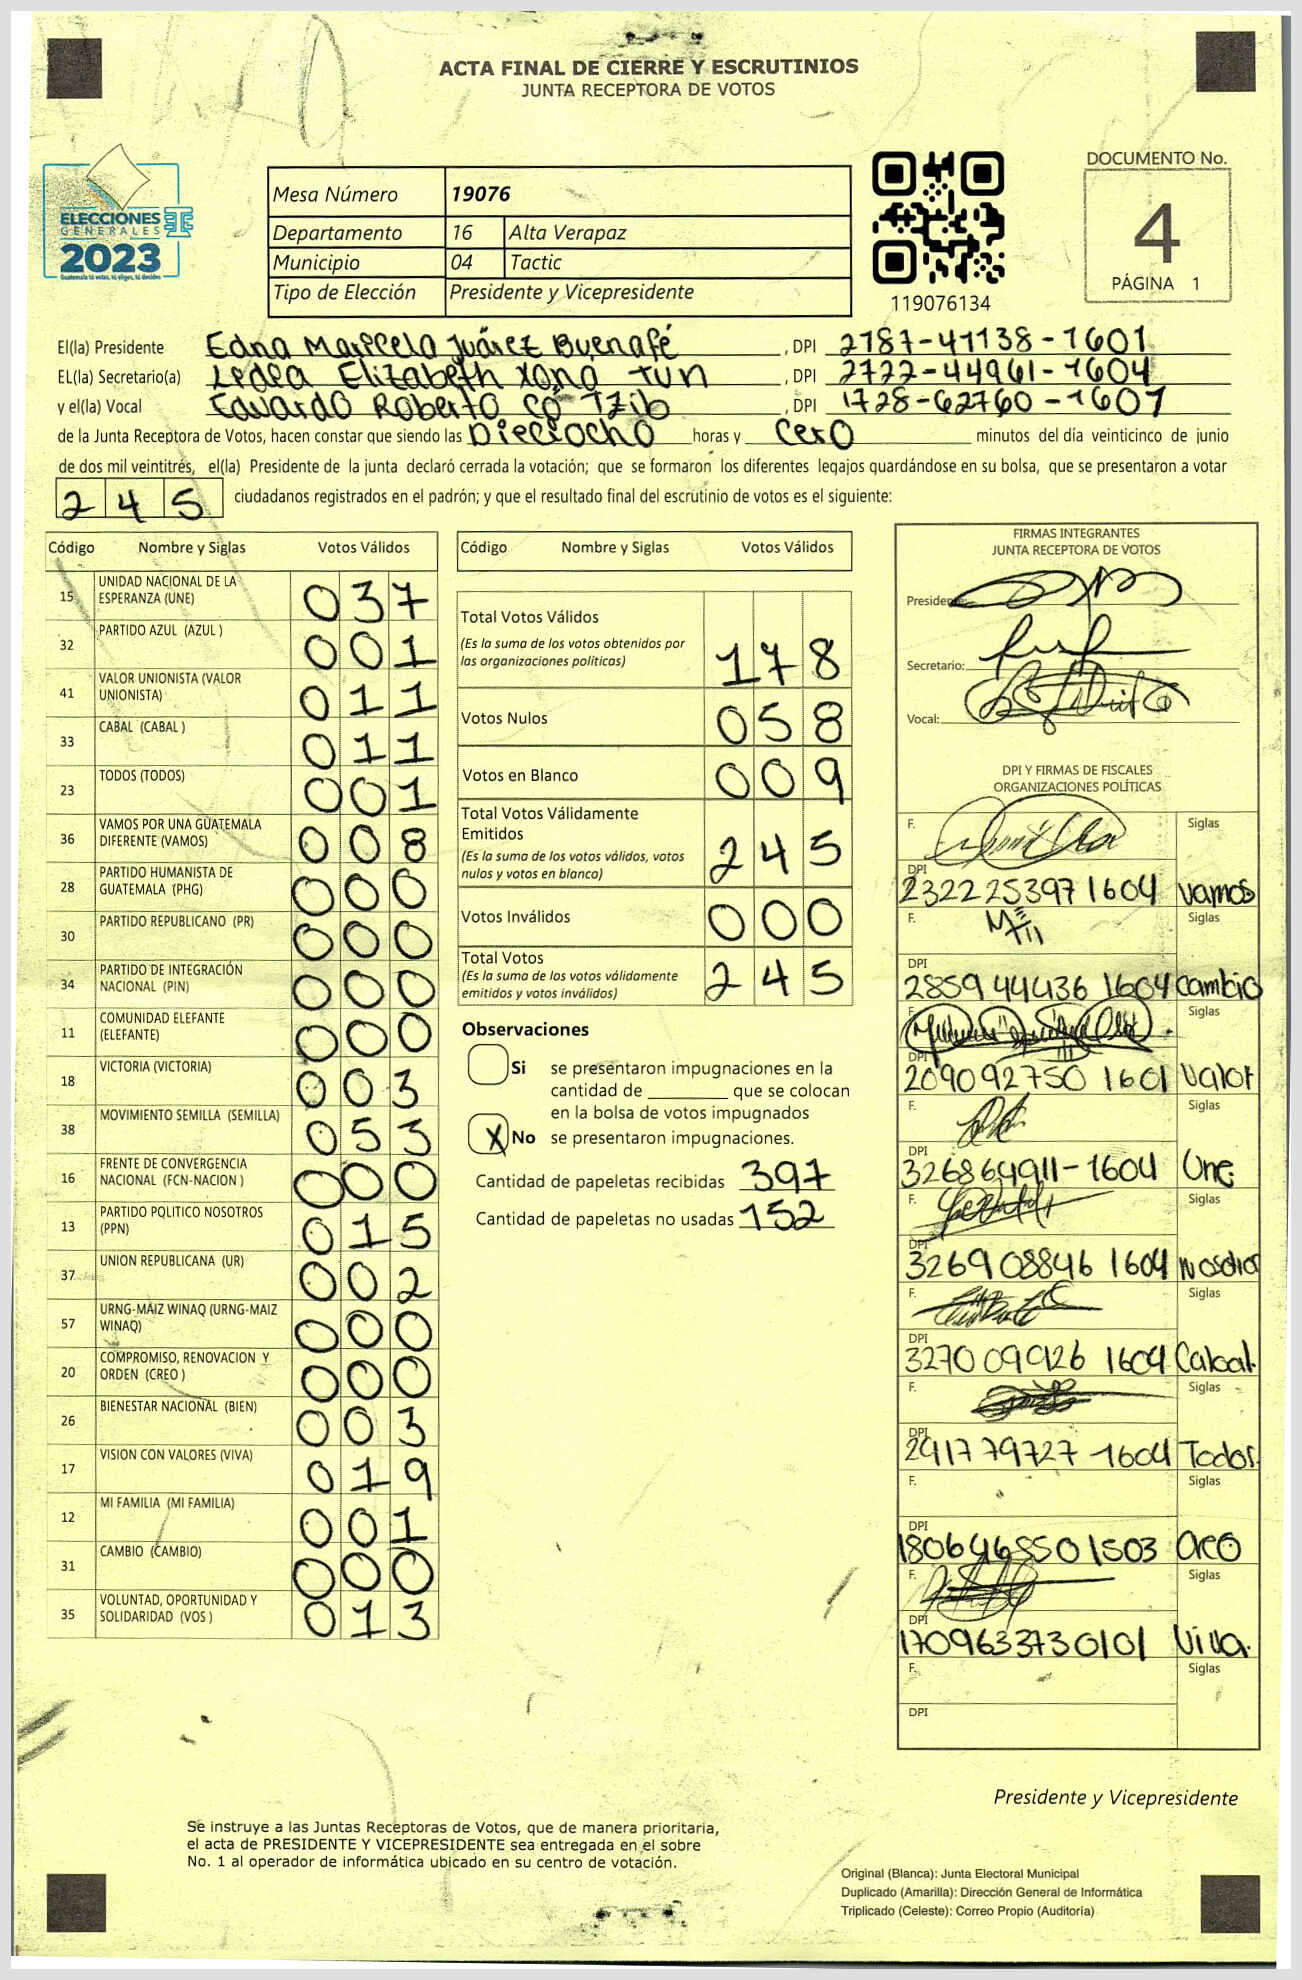 ACTA FINAL DE CIERRE Y ESCRUTINIOS
JUNTA RECEPTORA DE VOTOS
ELECCIONES
GENERALES
2023
Guatemala tú votas, tú eliges, tú decides
Mesa Número 19076
Departamento 16 Alta Verapaz
Municipio 04 Tactic
Tipo de Elección Presidente y Vicepresidente
119076134
DOCUMENTO No.
4
PÁGINA 1
El(la) Presidente Edna Maricela Juárez Buenafé , DPI 2787-41138-1601
EL(la) Secretario(a) Elizabeth Xoná Tun , DPI 2722-44961-1604
y el(la) Vocal Edwardo Roberto Có Tzib , DPI 1728-62760-1601
de la Junta Receptora de Votos, hacen constar que siendo las Dieciocho horas y cero minutos del día veinticinco de junio
de dos mil veintitrés, el(la) Presidente de la junta declaró cerrada la votación; que se formaron los diferentes legajos quardándose en su bolsa, que se presentaron a votar
245 ciudadanos registrados en el padrón; y que el resultado final del escrutinio de votos es el siguiente:
Código Nombre y Siglas Votos Válidos
15 UNIDAD NACIONAL DE LA ESPERANZA (UNE) 037
32 PARTIDO AZUL (AZUL ) 001
41 VALOR UNIONISTA (VALOR UNIONISTA) 011
33 CABAL (CABAL ) 011
23 TODOS (TODOS) 001
36 VAMOS POR UNA GUATEMALA DIFERENTE (VAMOS) 008
28 PARTIDO HUMANISTA DE GUATEMALA (PHG) 000
30 PARTIDO REPUBLICANO (PR) 000
34 PARTIDO DE INTEGRACIÓN NACIONAL (PIN) 000
11 COMUNIDAD ELEFANTE (ELEFANTE) 000
18 VICTORIA (VICTORIA) 003
38 MOVIMIENTO SEMILLA (SEMILLA) 053
16 FRENTE DE CONVERGENCIA NACIONAL (FCN-NACION ) 000
13 PARTIDO POLITICO NOSOTROS (PPN) 015
37 UNION REPUBLICANA (UR) 002
57 URNG-MAIZ WINAQ (URNG-MAIZ WINAQ) 000
20 COMPROMISO, RENOVACION Y ORDEN (CREO ) 000
26 BIENESTAR NACIONAL (BIEN) 003
17 VISION CON VALORES (VIVA) 019
12 MI FAMILIA (MI FAMILIA) 001
31 CAMBIO (CAMBIO) 000
35 VOLUNTAD, OPORTUNIDAD Y SOLIDARIDAD (VOS ) 013
Código Nombre y Siglas Votos Válidos
Total Votos Válidos
(Es la suma de los votos obtenidos por
las organizaciones políticas) 178
Votos Nulos 058
Votos en Blanco 009
Total Votos Válidamente
Emitidos
(Es la suma de los votos válidos, votos
nulos y votos en blanco) 245
Votos Inválidos 000
Total Votos
(Es la suma de los votos válidamente
emitidos y votos inválidos) 245
Observaciones
Si se presentaron impugnaciones en la
cantidad de ________ que se colocan
en la bolsa de votos impugnados
X No se presentaron impugnaciones.
Cantidad de papeletas recibidas 397
Cantidad de papeletas no usadas 152
FIRMAS INTEGRANTES
JUNTA RECEPTORA DE VOTOS
Presidente:
Secretario:
Vocal:
DPI Y FIRMAS DE FISCALES
ORGANIZACIONES POLÍTICAS
F. Siglas
DPI
2322253971604 vamos
F. Siglas
DPI
2859 44436 1604 cambio
F. Siglas
DPI
209092750 1601 valor
F. Siglas
DPI
326864911-1604 Une
F. Siglas
DPI
326908846 1604 Nosotros
F. Siglas
DPI
3270 09926 1604 Cabal.
F. Siglas
DPI
291779727 1604 Todos.
F. Siglas
DPI
1806468501503
F. Siglas
DPI
1709633730101 Viva.
F. Siglas
DPI
Presidente y Vicepresidente
Se instruye a las Juntas Receptoras de Votos, que de manera prioritaria,
el acta de PRESIDENTE Y VICEPRESIDENTE sea entregada en el sobre
No. 1 al operador de informática ubicado en su centro de votación.
Original (Blanca): Junta Electoral Municipal
Duplicado (Amarilla): Dirección General de Informática
Triplicado (Celeste): Correo Propio (Auditoría)